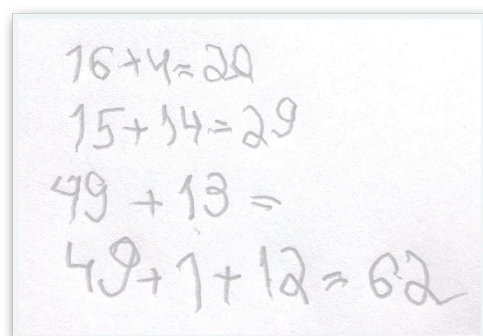 16+4=20
15+14=29
49+13=
49+1+12=62